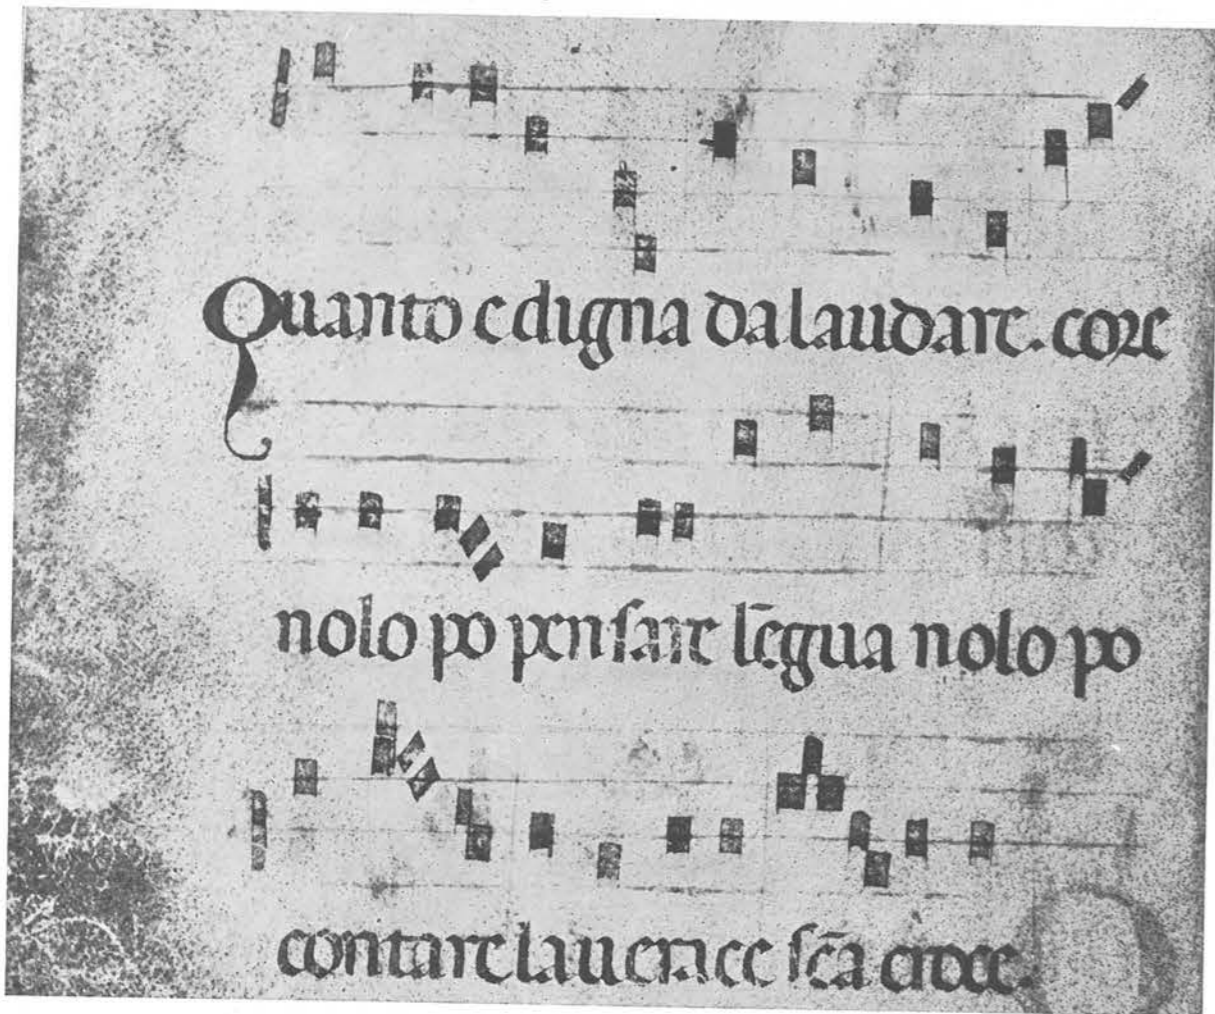 Quanto e digna da laudare. core
nolo po pensare lēgua nolo po
contare la uerace sc̄a croce.